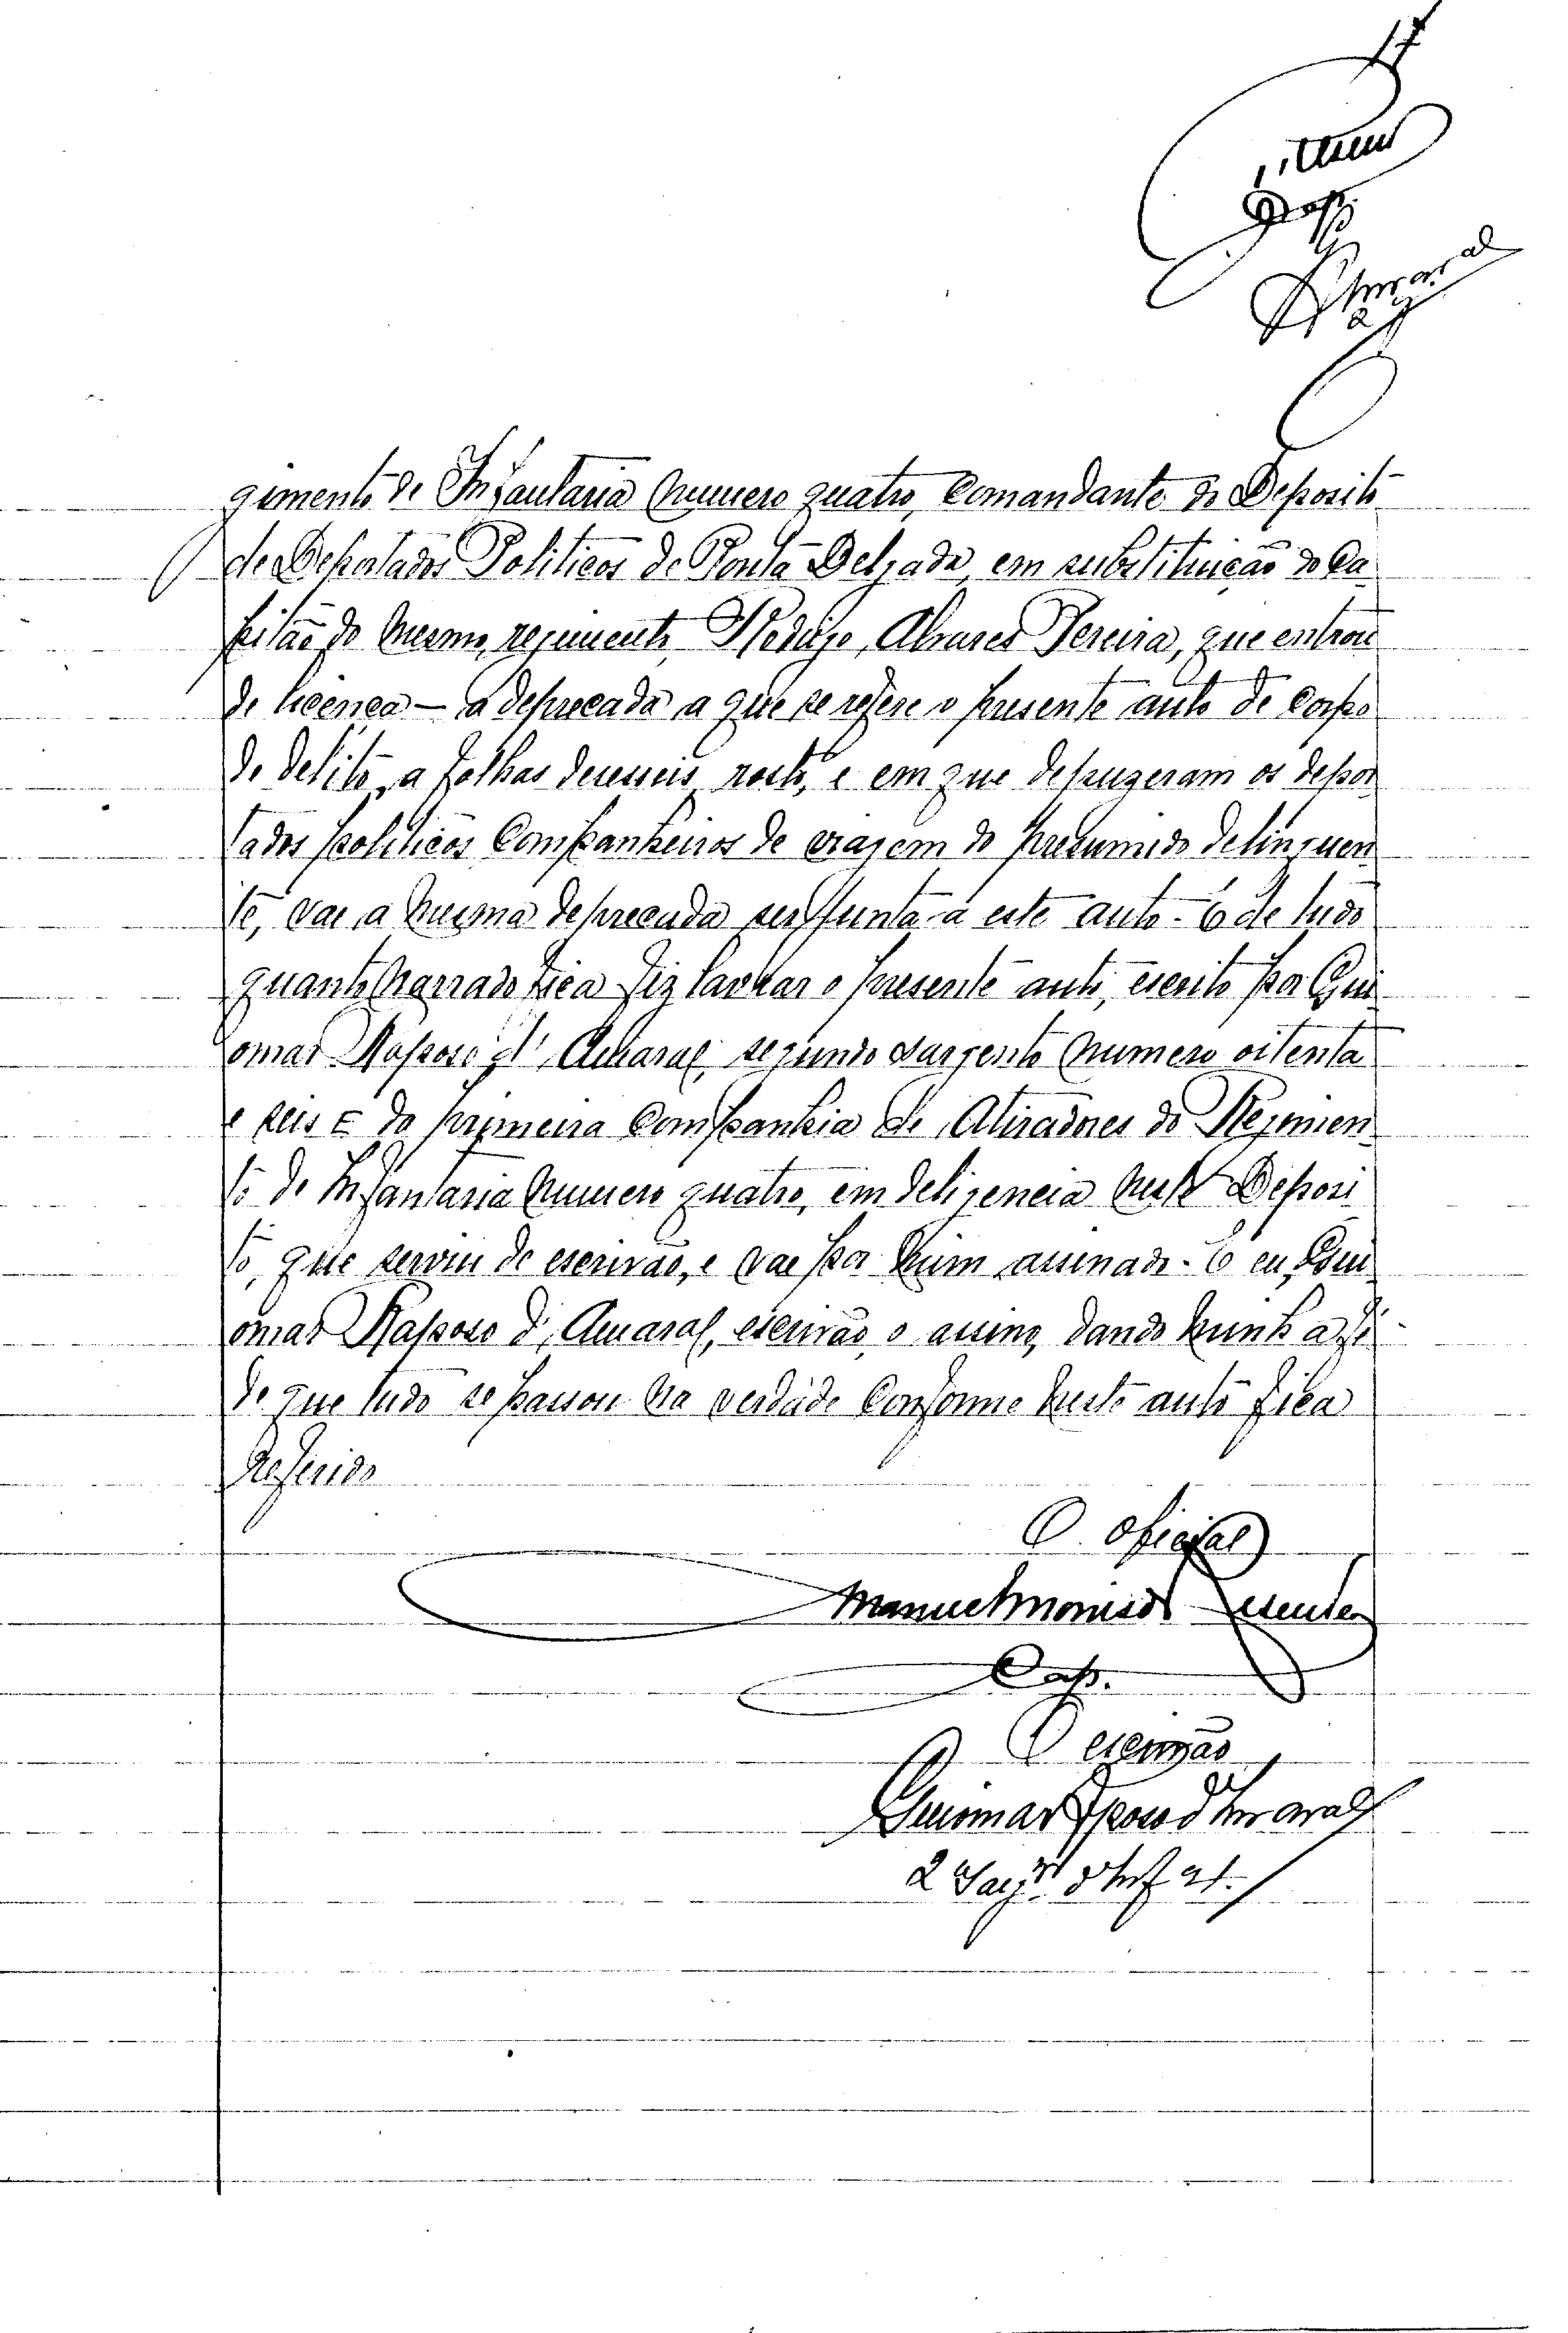 17
gimento de Infantaria numero quatro, Comandante do Deposito
de Deportados Politicos de Ponta Delgada, em substituição do Ca
pitão do mesmo regimento, Rodrigo Alvares Pereira, que entrou
de licença — a deprecada a que se refere o presente auto de corpo
de delito, a folhas deseseis rosto, e em que depuzeram os depor
tados politicos companheiros de viagem do presumido delinquen
te, vae a mesma deprecada ser junta a este auto. E de tudo
quanto narrado fica fiz lavrar o presente auto, escrito por Gui
omar Raposo d'Amaral, segundo sargento numero oitenta
e seis E da primeira Companhia de Atiradores do Regimen
to de Infantaria numero quatro, em deligencia neste Deposi
to, que serviu de escrivão, e vae por mim assinado. E eu, Gui
omar Raposo d'Amaral, escrivão, o assino, dando minha fé
de que tudo se passou na verdade conforme neste auto fica
referido
O oficial
Manuel Moniz de Resende
Cap.
O escrivão
Guiomar Raposo d'Amaral
2 Sarg. d'Inf